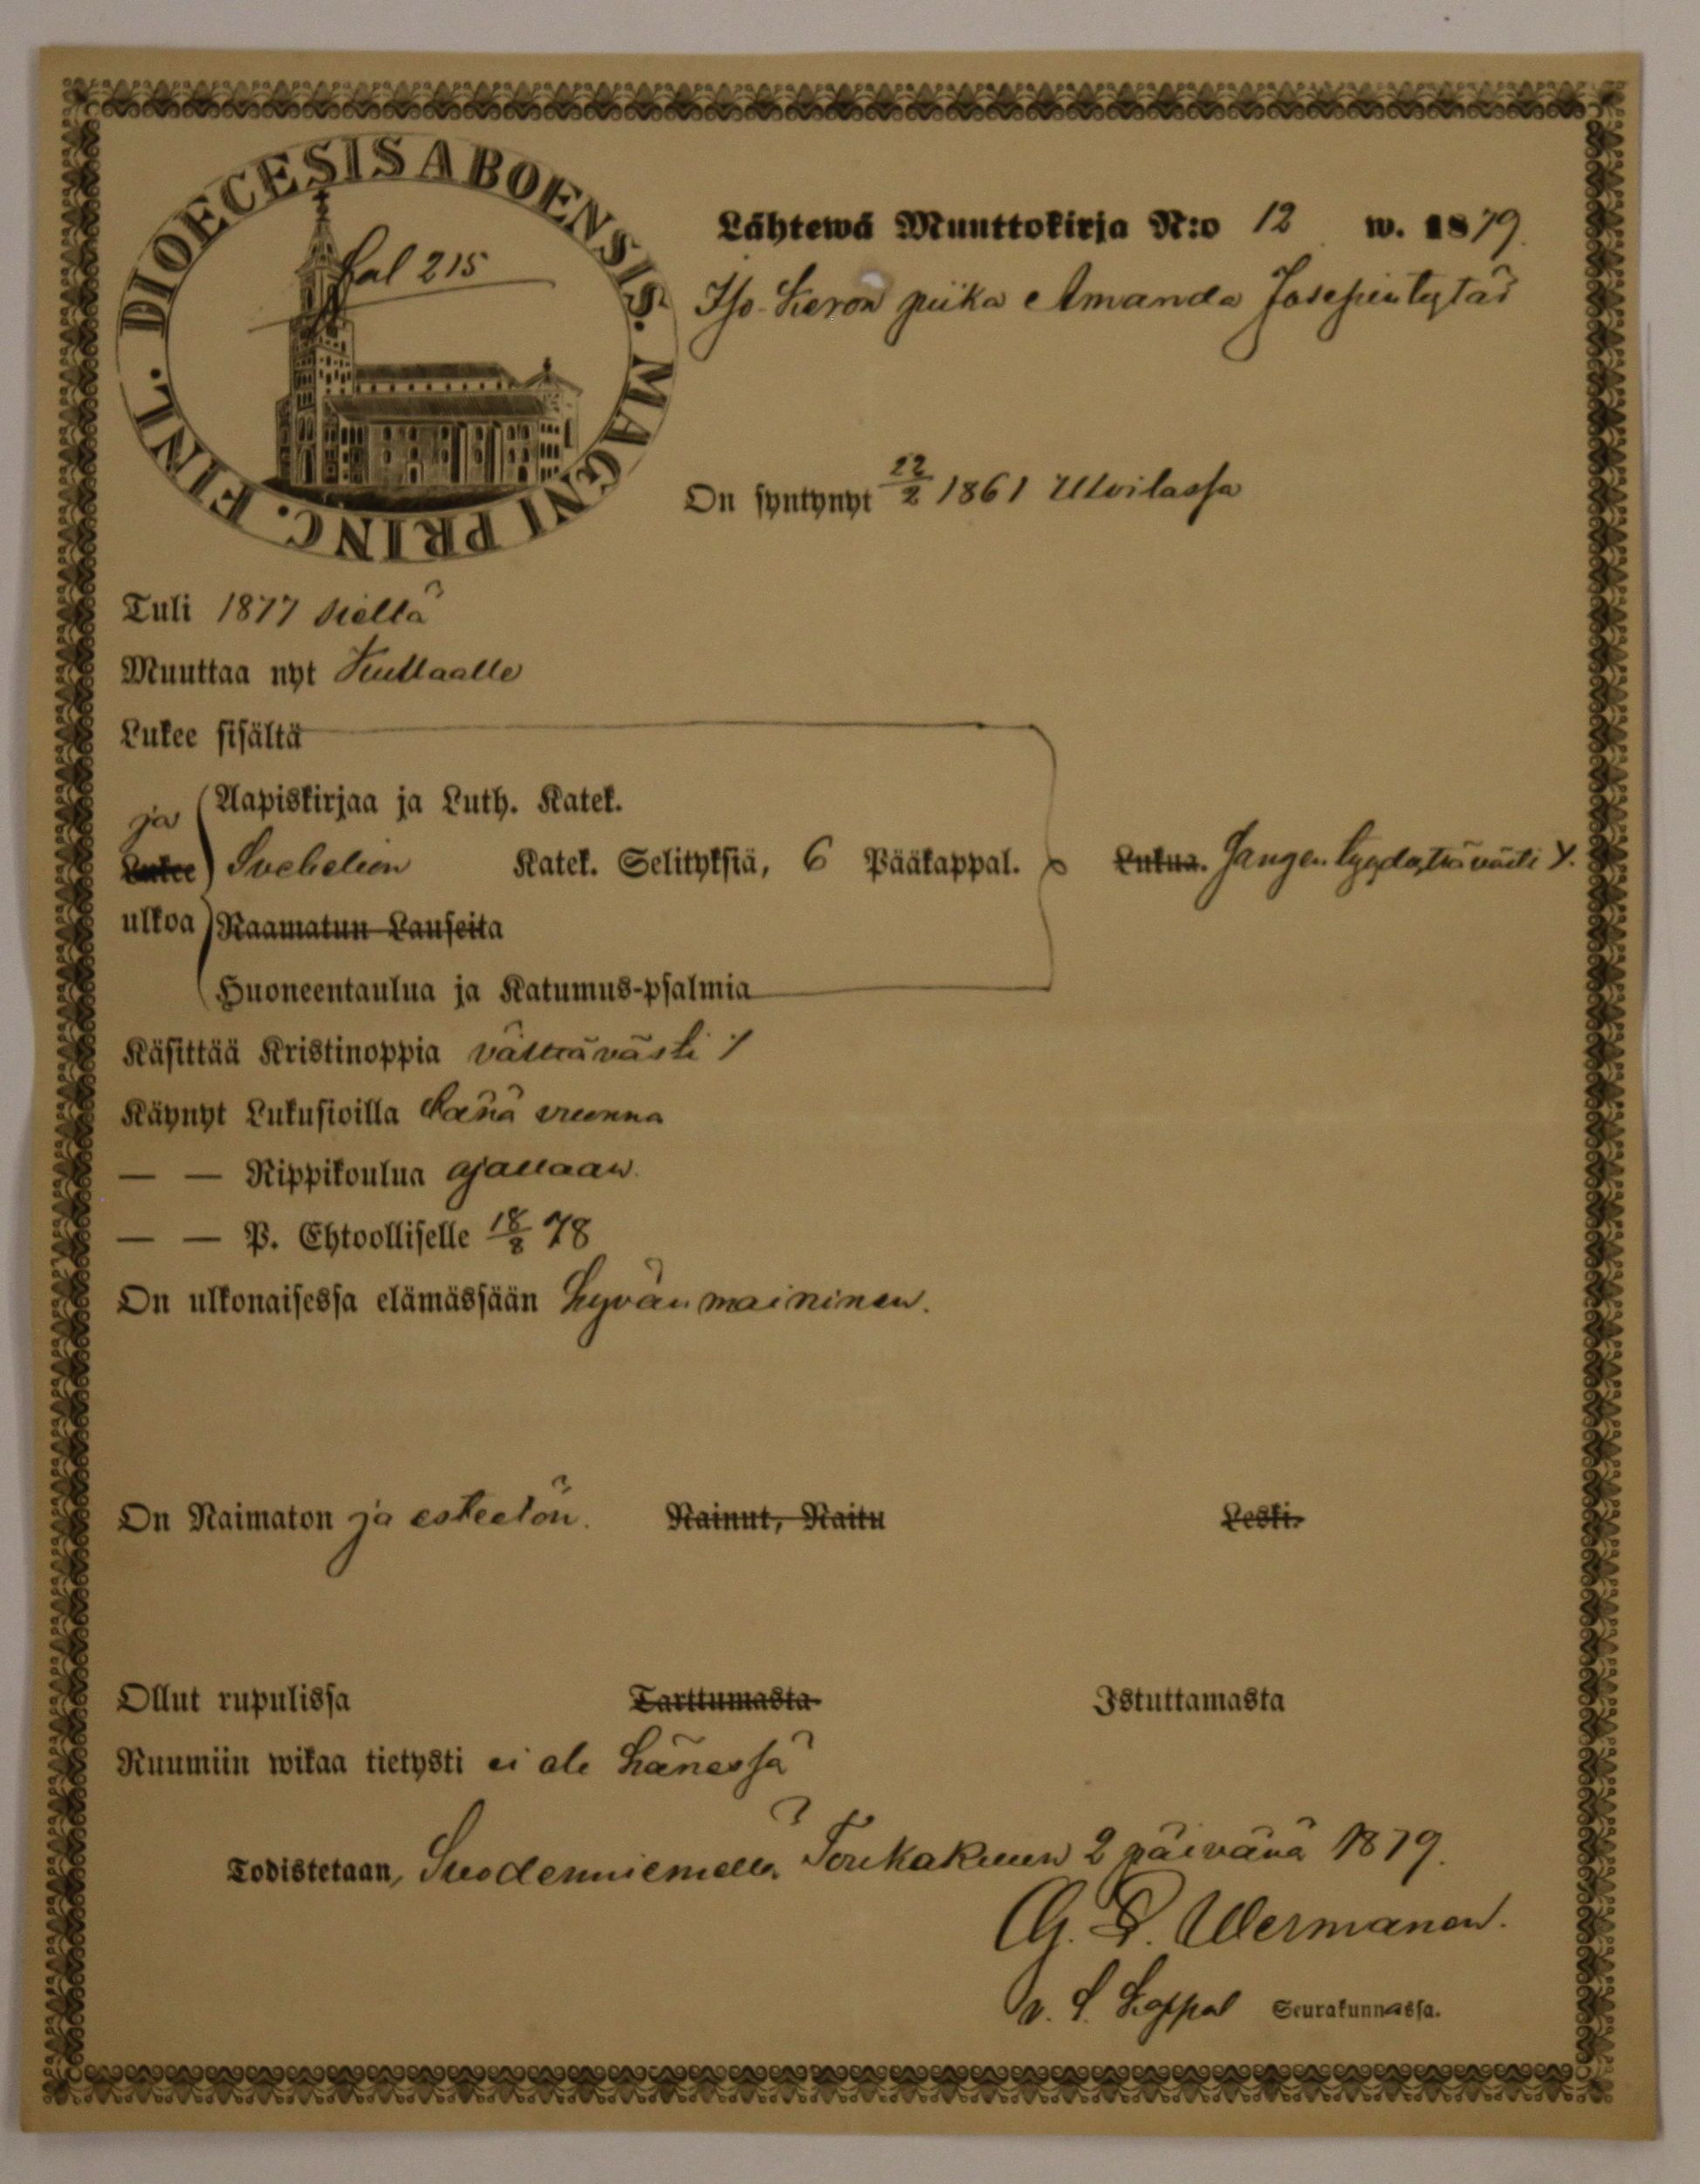 DIOECESIS ABOENSIS. MAGNI PRINC. FINL.
215
Lähtewä Muuttokirja N:o 12 w. 1879.
Iso-Keron piika Amanda Josepintytär
On syntynyt 22/2 1861 Ulvilassa
Tuli 1877 sieltä
Muuttaa nyt Kullaalle
Lukee sisältä
ja
Aapiskirjaa ja Luth. Katek.
Lukee Svebelion Katek. Selityksiä, 6 Pääkappal. Lukua. tyydyttävästi
ulkoa Raamatun Lauseita
Huoneentaulua ja Katumus-psalmia
Käsittää Kristinoppia välttävästi
Käynyt Lukusioilla tänä vuonna
— — Rippikoulua ajallaan.
— — P. Ehtoolliselle 18/8 78
On ulkonaisessa elämässään hyvän maininen.
On Naimaton ja esteetön. Nainut, Naitu Leski.
Ollut rupulissa Tarttumasta Istuttamasta
Ruumiin wikaa tietysti ei ole hänessä
Todistetaan, Suodenniemellä Toukokuun 2 päivänä 1879.
G. Wermanen.
v. Kappal Seurakunnassa.